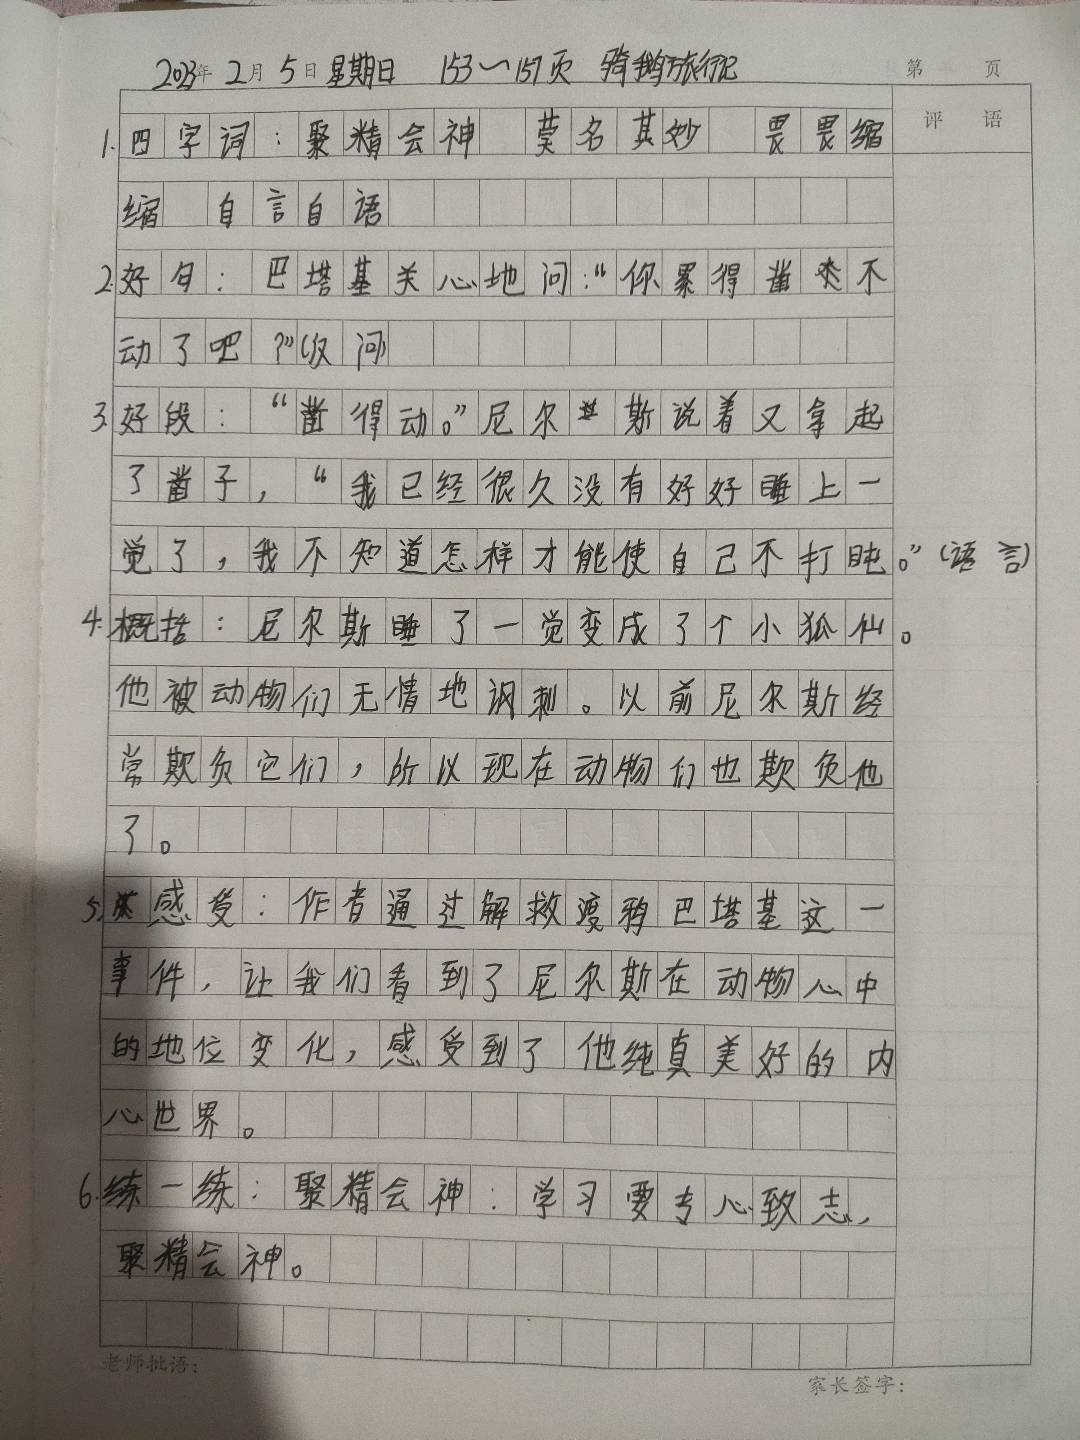 2023年 2月 5日 星期日 153~157页 骑鹅旅行记 第 页
评 语
1.四字词：聚精会神 莫名其妙 畏畏缩
缩 自言自语
2.好句：巴塔基关心地问：“你累得凿不
动了吧？”(反问)
3.好段：“凿得动。”尼尔斯说着又拿起
了凿子，“我已经很久没有好好睡上一
觉了，我不知道怎样才能使自己不打盹。”(语言)
4.概括：尼尔斯睡了一觉变成了个小狐仙。
他被动物们无情地讽刺。以前尼尔斯经
常欺负它们，所以现在动物们也欺负他
了。
5.感受：作者通过解救渡鸦巴塔基这一
事件，让我们看到了尼尔斯在动物心中
的地位变化，感受到了他纯真美好的内
心世界。
6.练一练：聚精会神：学习要专心致志，
聚精会神。
老师批语：
家长签字：